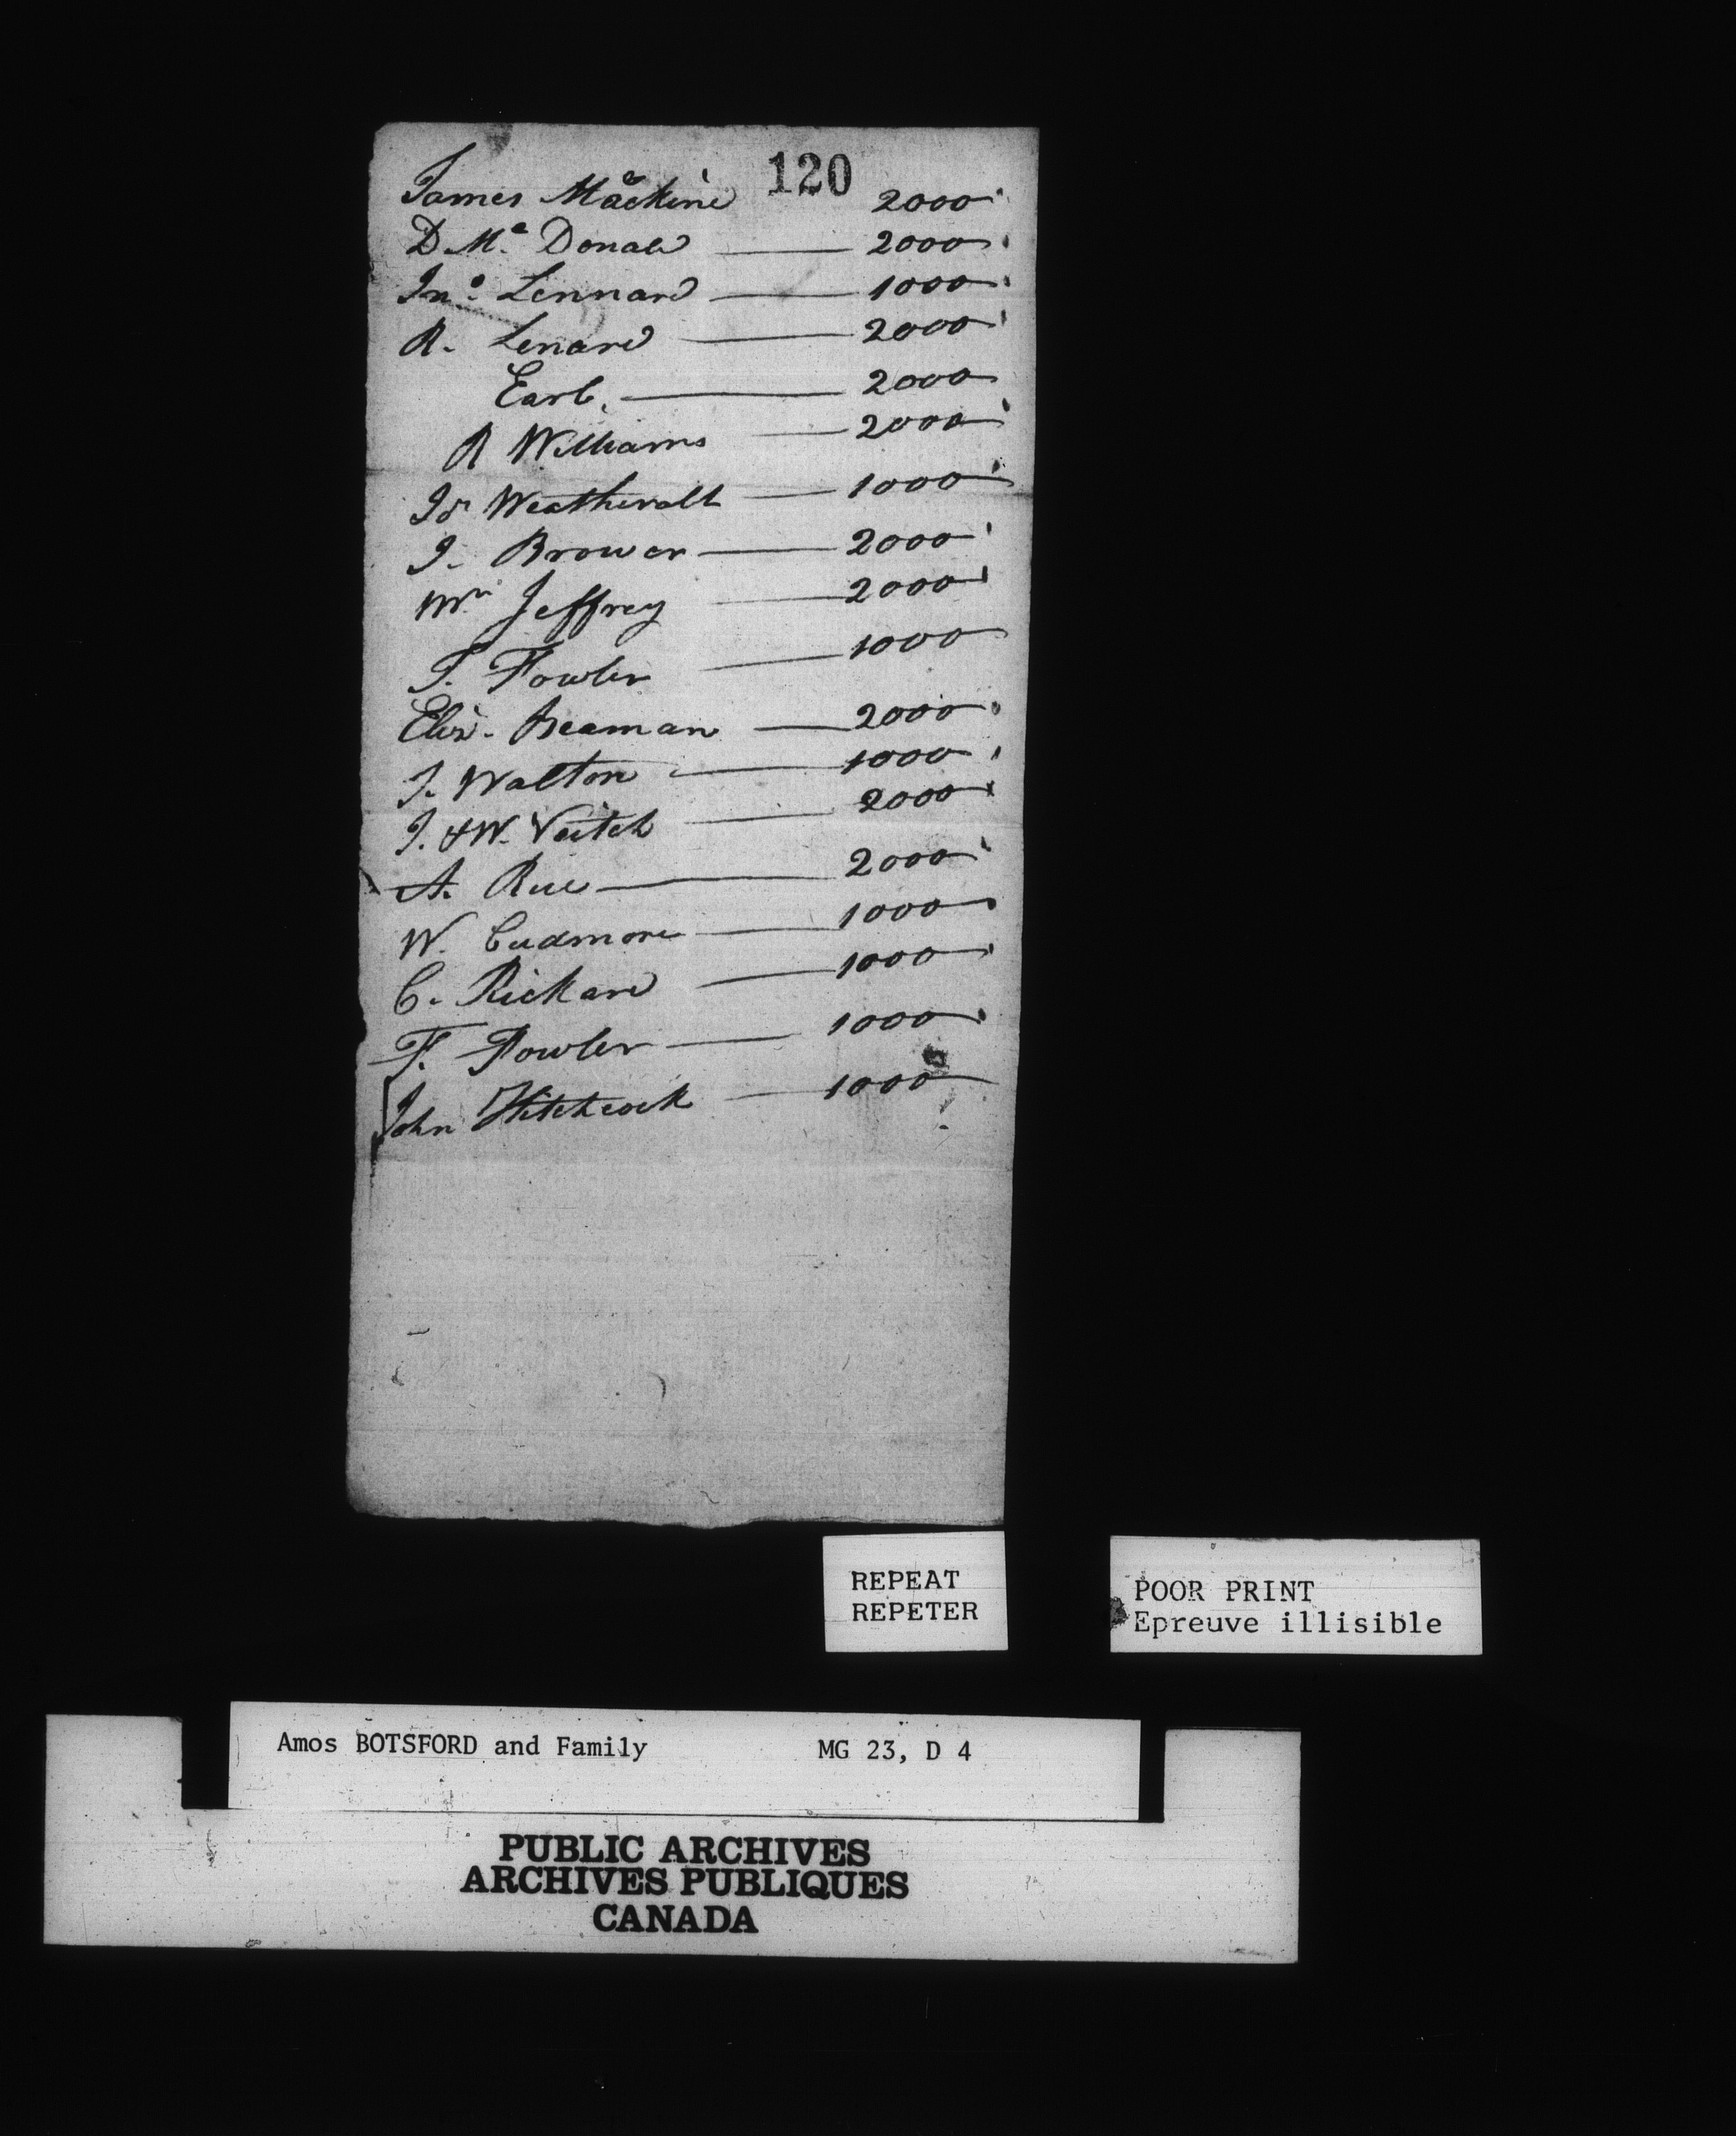 120
James Mackine 2000
D. Mc. Donald 2000
Jno. Lennard 1000
R. Lenard 2000
Earl. 2000
R Williams 2000
Weatheralt 1000
J. Brower 2000
Wm Jeffrey 2000
T. Fowler 1000
Eliz. Beaman 2000
J. Walton 1000
J. & W. Veitch 2000
A. Rue 2000
W. Cudmore 1000
C. Rickard 1000
F. Fowler 1000
John Hitchcock 1000
REPEAT
REPETER
POOR PRINT
Epreuve illisible
Amos BOTSFORD and Family MG 23, D 4
PUBLIC ARCHIVES
ARCHIVES PUBLIQUES
CANADA